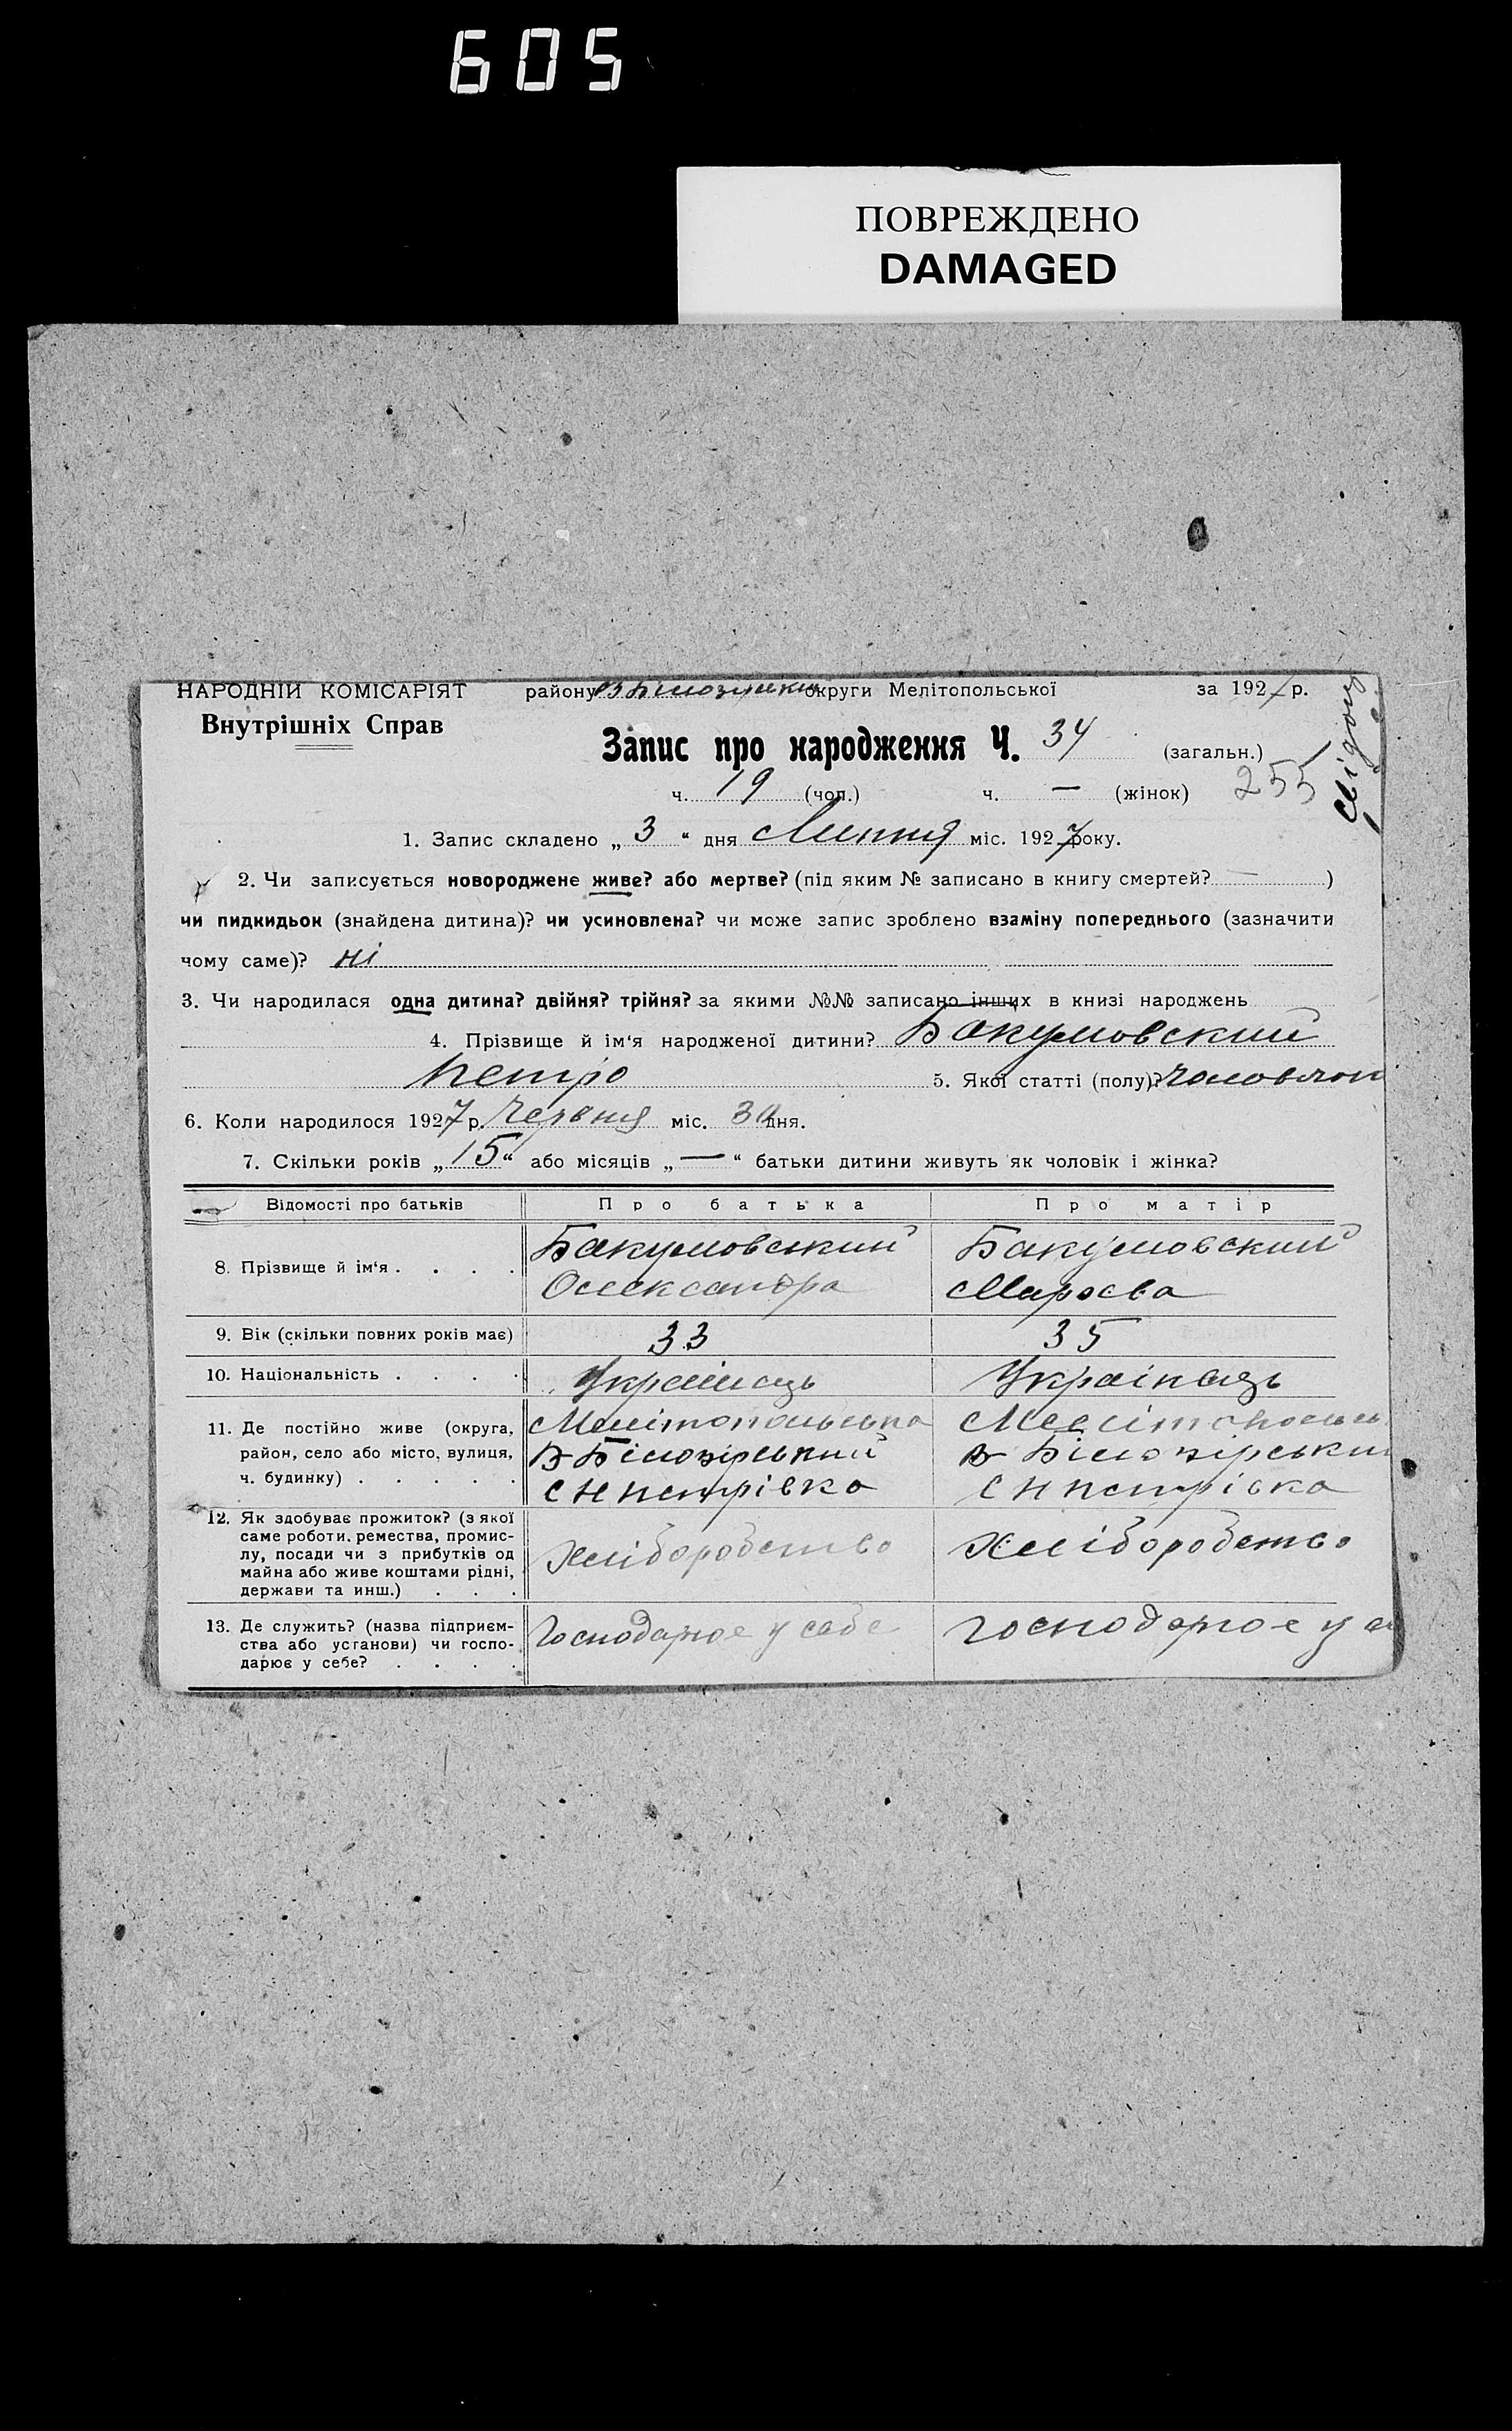 605
ПОВРЕЖДЕНО
DAMAGED
НАРОДНІЙ КОМІСАРІЯТ району округи Мелітопольської за 1927 р.
Внутрішніх Справ
Запис про народження Ч. 34 (загальн.)
ч. 19 (чол.) ч. — (жінок) 255
1. Запис складено „ 3 “ дня Липня міс. 1927 року.
2. Чи записується новороджене живе? або мертве? (під яким № записано в книгу смертей? — )
чи пидкидьок (знайдена дитина)? чи усиновлена? чи може запис зроблено взаміну попереднього (зазначити
чому саме)? ні
3. Чи народилася одна дитина? двійня? трійня? за якими №№ записано інших в книзі народжень
4. Прізвище й ім‘я народженої дитини? Бакумовский
Петро 5. Якої статті (полу)?
6. Коли народилося 1927 р. Червня міс. 30 дня.
7. Скільки років „ 15 “ або місяців „ — “ батьки дитини живуть як чоловік і жінка?
Відомості про батьків Про батька Про матір
8. Прізвище й ім‘я . . . . Бакумовський Бакумовский
Олександра
9. Вік (скільки повних років має) 33 35
10. Національність . . . . Українець Українець
11. Де постійно живе (округа, Мелітопольська
район, село або місто, вулиця, В-Білозірський В-Білозірськи
ч. будинку) . . . . . с Н Петрівка с Н Петрівка
12. Як здобуває прожиток? (з якої
саме роботи, ремества, промис-
лу, посади чи з прибутків од Хліборобство Хліборобство
майна або живе коштами рідні,
держави та инш.) . . .
13. Де служить? (назва підприєм- Господарює у себе Господарює у
ства або установи) чи госпо-
дарює у себе? . . . .